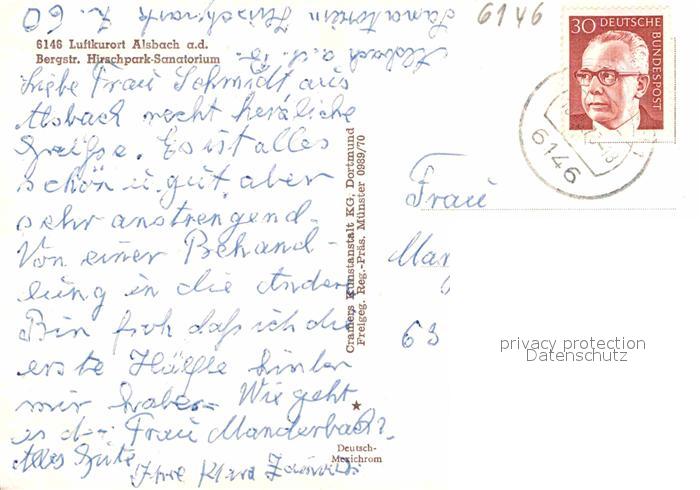 Alsbach a. d. B.
Sanatorium Hirschpark Z. 60
6146 Luftkurort Alsbach a.d.
Bergstr. Hirschpark-Sanatorium
Liebe Frau Schmidt aus
Alsbach recht herzliche
Grüße. Es ist alles
schön u. gut aber
sehr anstrengend.
Von einer Behand-
lung in die Andere
Bin froh daß ich die
erste Hälfte hinter
mir habe. Wie geht
es d. Frau Manderbach?
Alles Gute
Ihre Klara
Cramers Kunstanstalt KG, Dortmund
Freigeg. Reg.-Präs. Münster 0989/70
Deutsch-
Mexichrom
6146
30 DEUTSCHE
BUNDESPOST
6146
Frau
63
privacy protection
Datenschutz